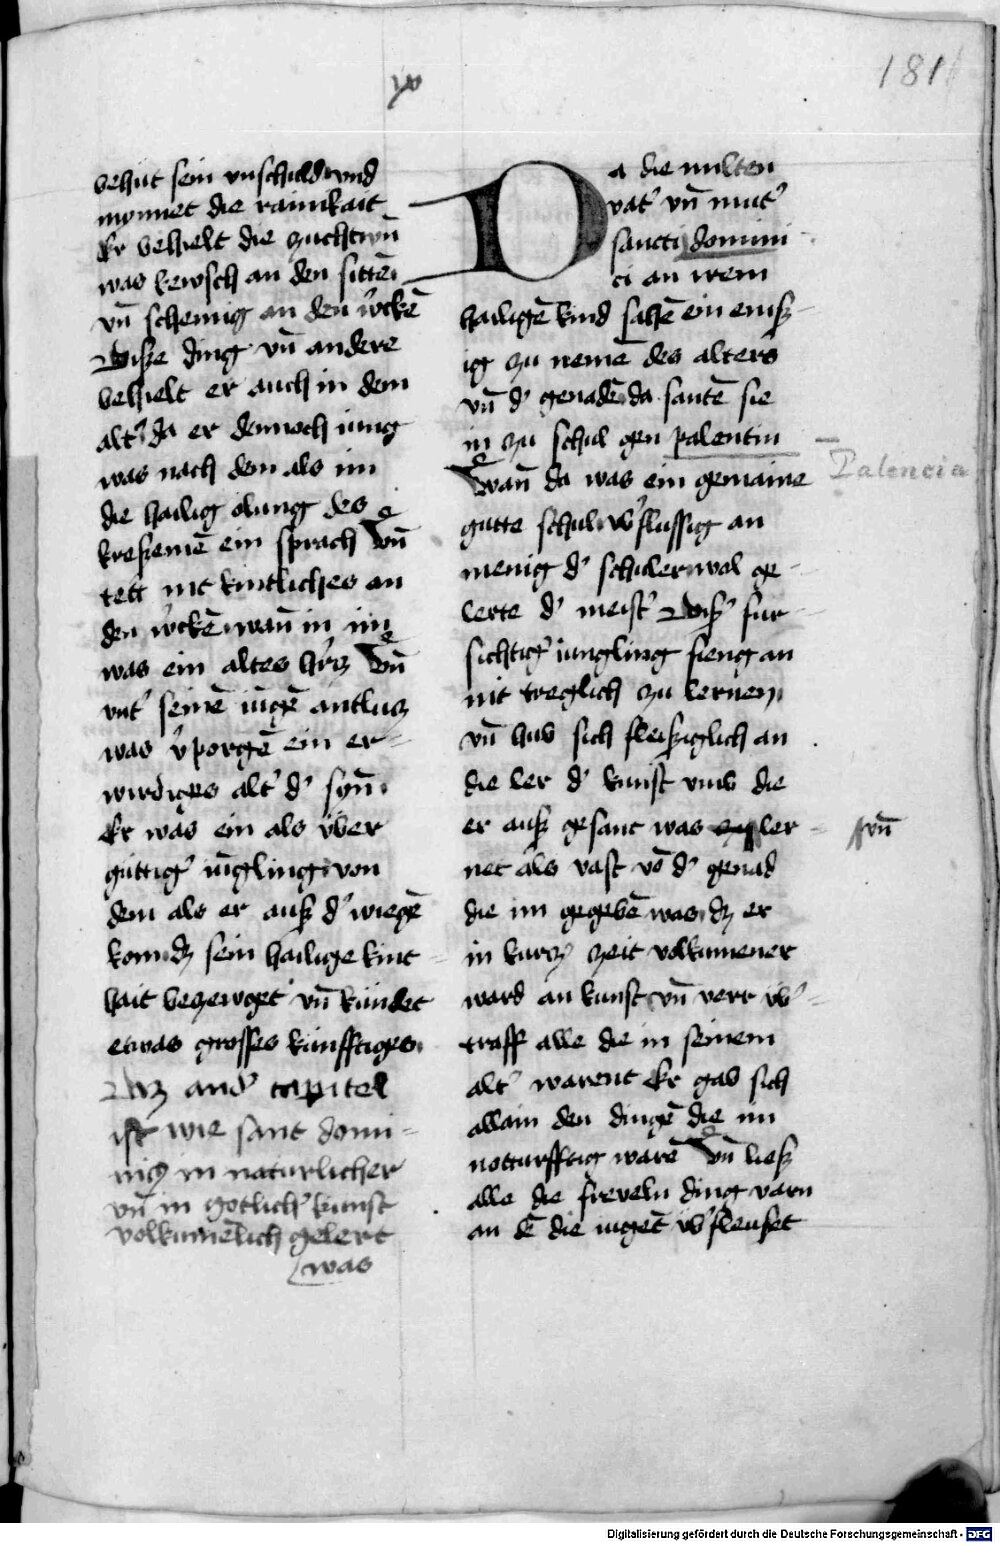 181
xv
behut sein vnschuld vnd
monnet die rainikait
Er behielt die zucht vn̄
was kewsch an den sitten
vn̄ schemig an den w̓ckē
Disze ding vn̄ andere
behielt er auch in dem
alt̓ da er dennoch iung
was nach dem als im
die hailig olung des
kresemē ein sprach Vn̄
tett nit kintliches an
den w̓ckē wan̄ in im
was ein altes h̓rcz Vn̄
vnt̓ seinē iūgē antlucz
was v̓porgē ein er-
wirdiges alt̓ d̓ syn̄
Er was ein als vber
guttig̓ iūgling von
dem als er ausz d̓ wiegē
kom dz sein hailige kint-
hait beczewget vn̄ kundet
etwas grosses kunfftiges
Daz and̓ capitel
ist wie sant domi-
nicz in naturlicher
vn̄ in gotlich̓ kunst
volkumēlich gelert
was
Da die milten
vat̓ vn̄ mut̓
sancti domini-
ci an irem
hailigē kind sahē ein emsz-
ig zu nemē des alters
vn̄ d̓ genadē da santē sie
in zu schul gen palentin
Wan̄ da was ein gemaine
gutte schul vb̓flussig an
menig d̓ schuler wol ge-
lerte d̓ meist̓ Disz̓ fur-
sichtig̓ iungling fieng an
nit treglich zu lernen
vn̄ hub sich fleisziglich an
die ler d̓ kunst vmb die
er ausz gesant was ler-
net als vast vō d̓ genad
die im gegebē was dz er
in kurcz̓ zeit volkumener
ward an kunst vn̄ verr vb̓-
traff alle die in seinem
alt̓ warent Er gab sich
allain den dingē die im
notturfftig warē Vn̄ liesz
alle die freveln ding varn
an dē die iugēt vb̓fleuset
Palencia
vn̄
Digitalisierung gefördert durch die Deutsche Forschungsgemeinschaft - DFG